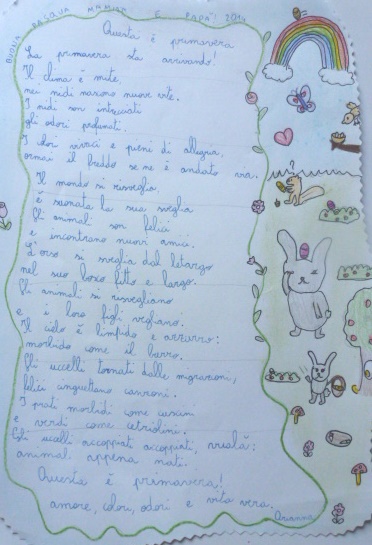 BUONA PASQUA MAMMA E PAPA'! 2014
Questa è primavera
La primavera sta arrivando!
Il clima è mite,
nei nidi nascono nuove vite.
I nidi son intrecciati
gli odori profumati.
I fior vivaci e pieni di allegria,
ormai il freddo se ne è andato via.
Il mondo si risveglia,
è suonata la sua sveglia
Gli animal son felici
e incontrano nuovi amici.
L'orso si sveglia dal letargo
nel suo bosco fitto e largo.
Gli animali si risvegliano
e i loro figli vegliano.
Il cielo è limpido e azzurro:
morbido come il burro.
Gli uccelli tornati dalle migrazioni,
felici cinguettano canzoni.
I prati morbidi come cuscini
e verdi come cetriolini.
Gli uccelli accoppiati accoppiati,
animal appena nati.
Questa è primavera!
amore, colori, odori e vita vera.
Arianna
?